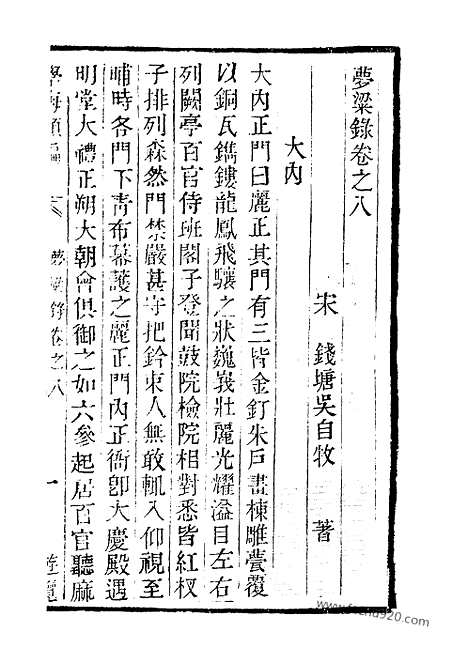 夢粱錄卷之八
宋 錢塘吳自牧 著
大內
大內正門曰麗正其門有三皆金釘朱戶畫棟雕甍覆
以銅瓦鐫鏤龍鳳飛驤之狀巍峩壯麗光耀溢目左右
列闕亭百官侍班閣子登聞鼓院檢院相對悉皆紅杈
子排列森然門禁嚴甚守把鈐束人無敢輒入仰視至
晡時各門下青布幕護之麗正門內正衙卽大慶殿遇
明堂大禮正朔大朝會俱御之如六參起居百官聽麻
學海類編 夢粱錄卷之八 一 遊覽